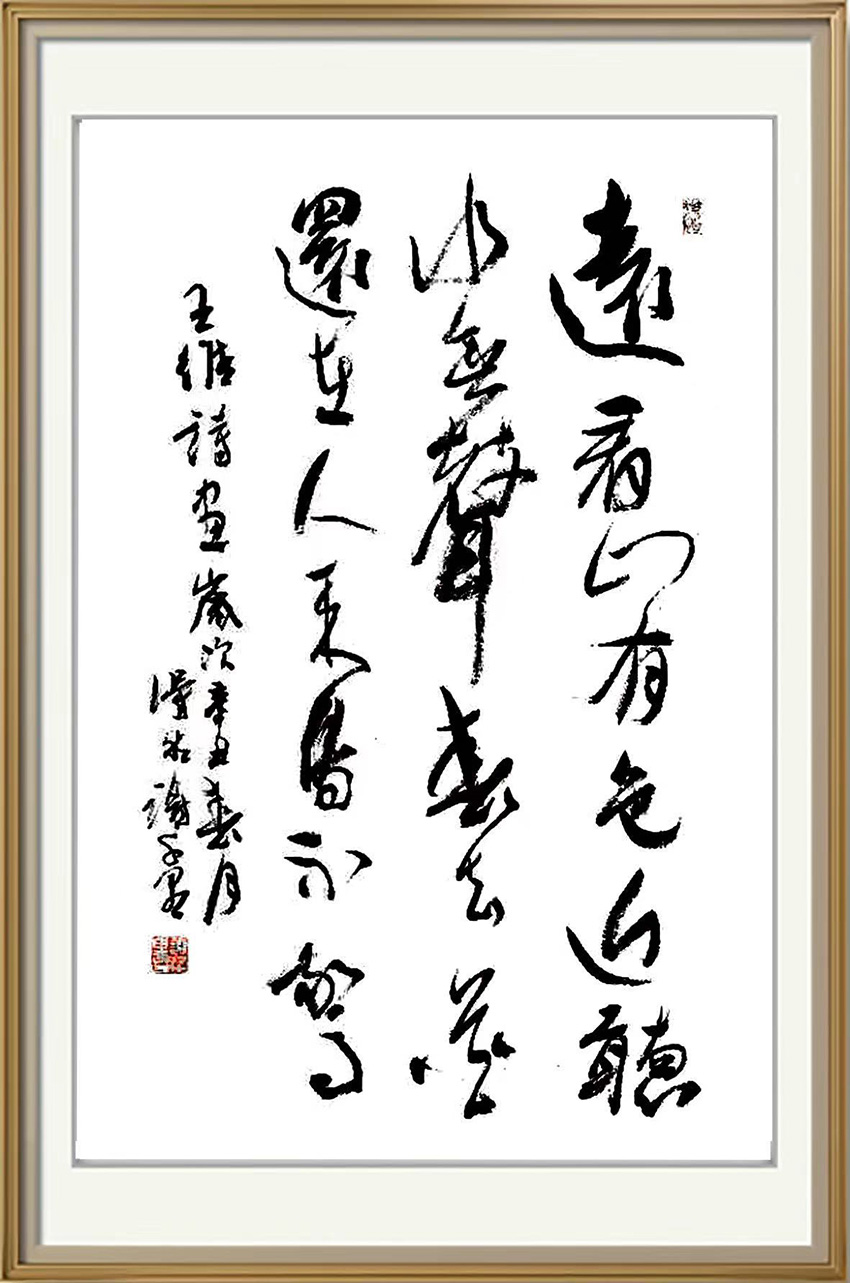 遠看山有色近聽
水無聲春去花
還在人来鳥不驚
王維詩畫歲次辛丑春月
謝